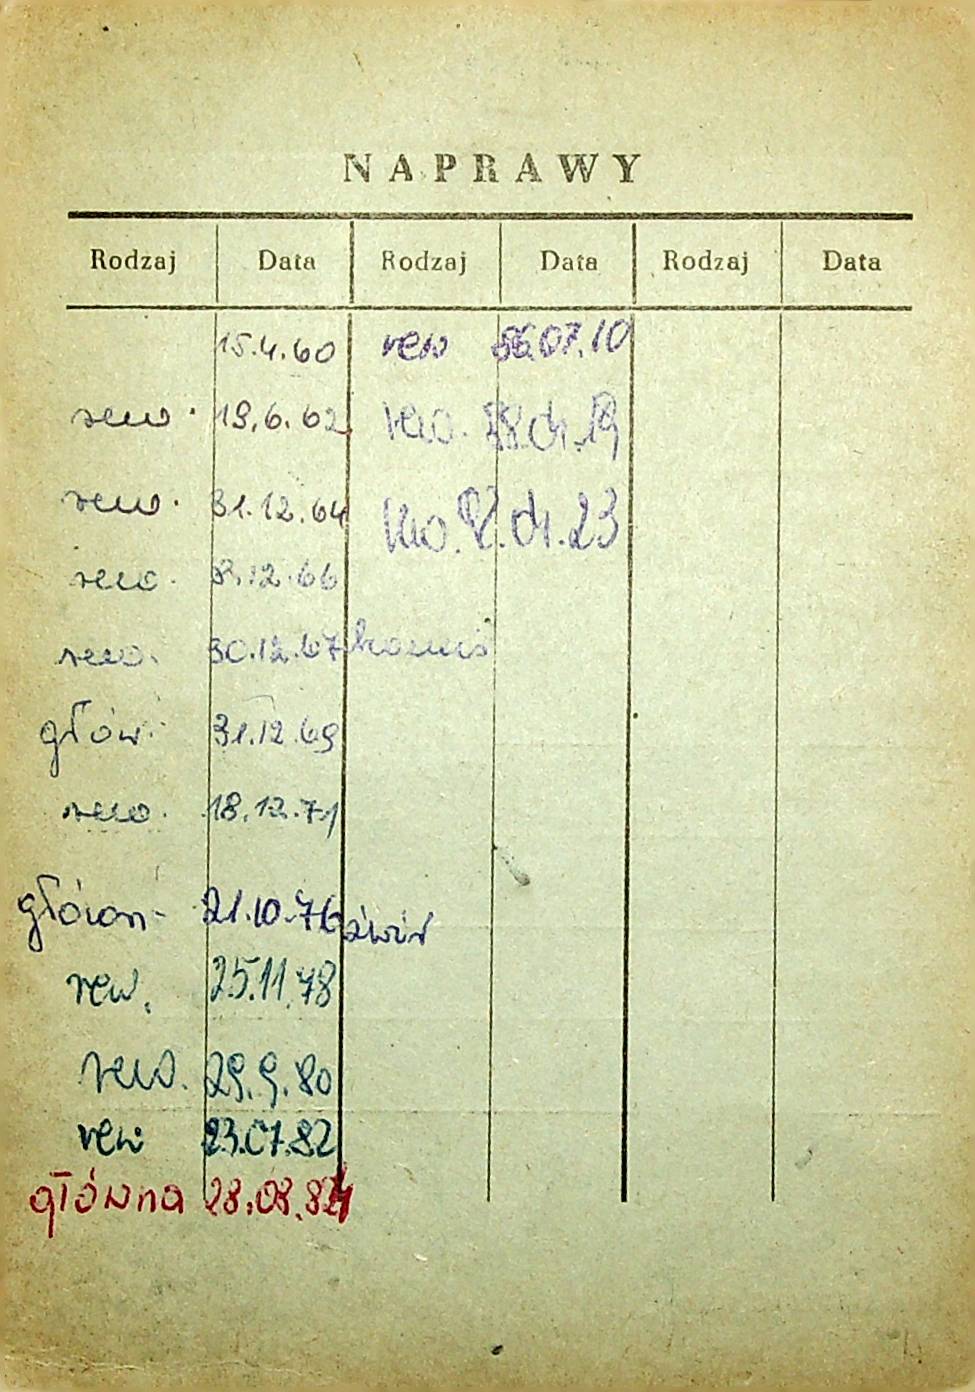 NAPRAWY
Rodzaj Data Rodzaj Data Rodzaj Data
15.4.60 rew 86.07.10
rew. 19.6.62 rew.
rew. 31.12.64
rew. 8.12.66
rew. 30.12.67
głów. 31.12.69
rew. 18.12.71
główn- 21.10.76
rew. 25.11.78
rew. 29.9.80
rew 23.07.82
główna 28.08.84